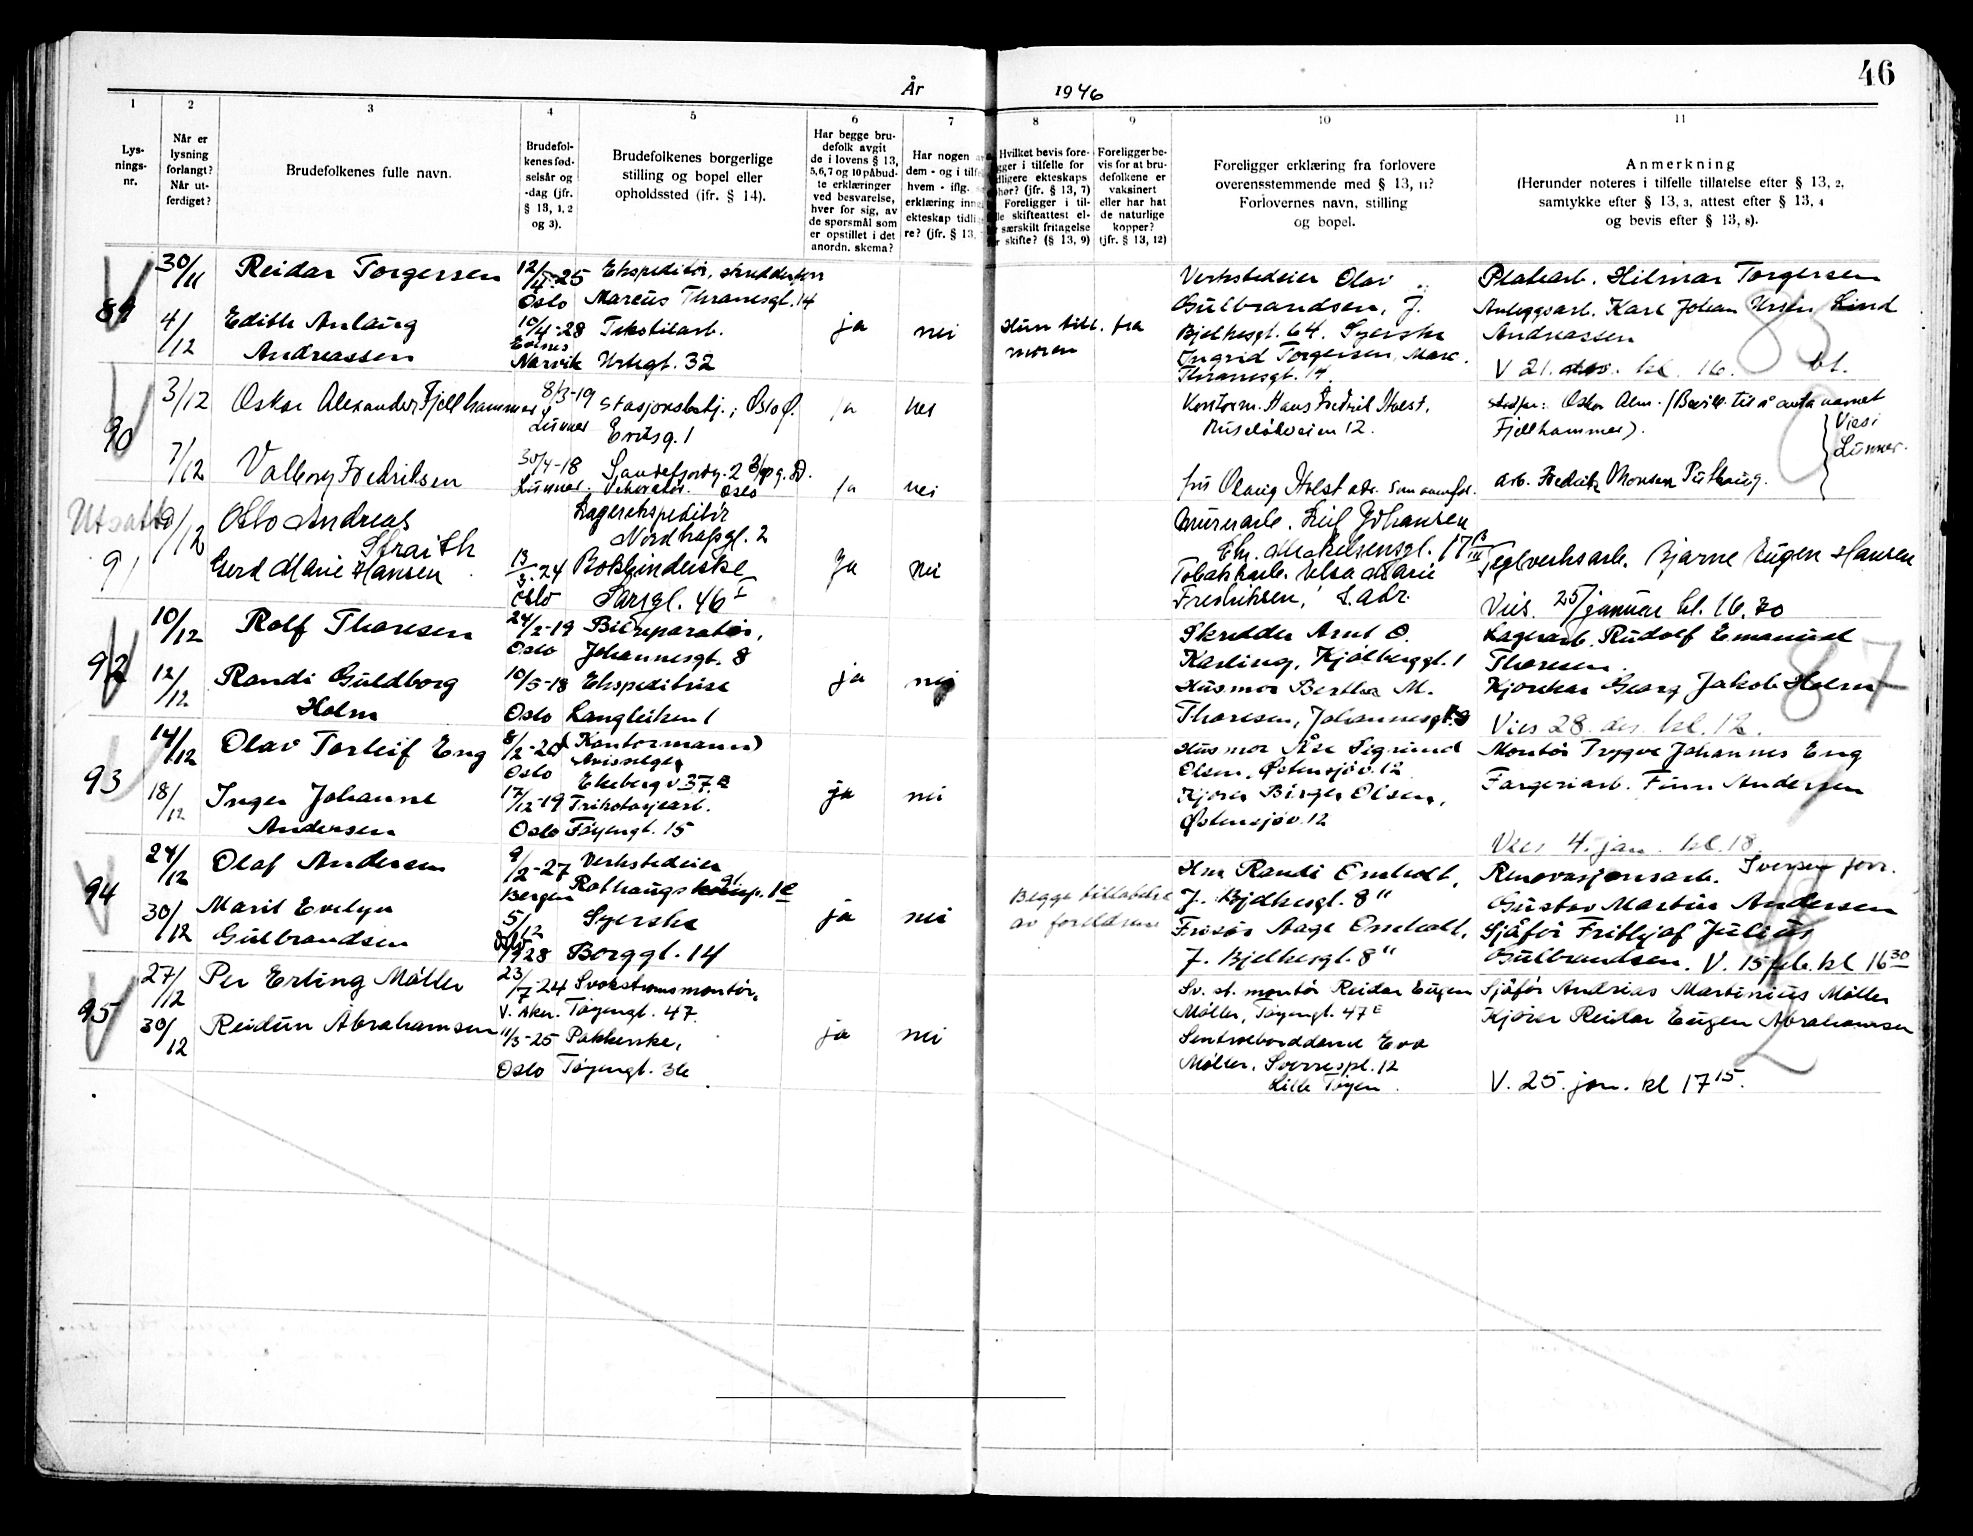 46
År 1946
1 2 3 4 5 6 7 8 9 10 11
Lys-
nings-
nr.
Når er
lysning
forlangt?
Når ut-
ferdiget?
Brudefolkenes fulle navn.
Brudefol-
kenes fød-
selsår og
-dag (jfr.
§ 13, 1, 2
og 3).
Brudefolkenes borgerlige
stilling og bopel eller
opholdssted (ifr. § 14).
Har begge bru-
defolk avgit
de i lovens § 13,
5,6,7 og 10 påbud-
te erklæringer
ved besvarelse,
hver for sig, av
de spørsmål som
er opstillet i det
anordn. skema?
Har nogen
dem - og i tilf
hvem - iflg.
erklæring inn
ekteskap tidli
re? (jfr. § 13,
Hvilket bevis fore-
gger i tilfelle for
dligere ekteskaps
hør? (jfr. § 13, 7)
Foreligger i til-
le skifteattest el-
særskilt fritagelse
skifte? (§ 13, 9)
Foreligger be-
vis for at bru-
defolkene er
vaksinert
eller har hat
de naturlige
kopper?
(jfr. § 13, 12)
Foreligger erklæring fra forlovere
overensstemmende med § 13, 11?
Forlovernes navn, stilling
og bopel.
Anmerkning
(Herunder noteres i tilfelle tillatelse efter § 13, 2,
samtykke efter § 13, 3, attest efter § 13, 4
og bevis efter § 13, 8).
89
30/11
4/12
Reidar Torgersen
Edith Anlaug
Andreassen
Oslo
10/4-28
Evenes
Narvik
Ekspeditør,
Marcus Thranesgt. 14
Tekstilarb.
Urtegt. 32
ja
nei
Hun till. fra
moren
Verkstedeier Olav
Gulbrandsen, J.
Bjelkesgt. 64. Syerske
Ingrid Torgersen, Marc.
Thranesgt. 14.
Platearb. Hilmar Torgersen
Anleggsarb. Karl Johan Ursin Lind
Andreassen
V 21. kl. 16.
85
90
3/12
7/12
Oskar Alexander Fjellhammer
Valborg Fredriksen
8/3-19
Lunner
30/4-18
Lunner.
Stasjonsbetj., Oslo Ø.
Eriksg. 1
Sandefjordg. 2
Oslo
ja
nei
ja
nei
Kontorm. Hans Fredrik Holst,
Ruseløkveien 12.
fru Olaug Holst adr. som ovenfor.
Oskar Alm. (Bevill. til å anta navnet
Fjellhammer).
arb. Fredrik Thorsen
Vies i
Lunner.
Utsatt
91
9/12
Oslo Andreas
Straith
Gerd Marie Hansen
13/3-24
Oslo
Lagerekspeditør
Nordkapgt. 2
Bokbinderske
Sarsgt. 46 I
Ja
nei
Murerarb. Leif Johansen
Chr. Michelsensgt. 17 B III
Tobakkarb. Elsa Marie
Fredriksen, s. adr.
Teglverksarb. Bjarne Eugen Hansen
Vies. 25/januar kl. 16.30
92
10/12
12/12
Rolf Thoresen
Randi Guldborg
Holm
24/2-19
Oslo
10/5-18
Oslo
Bilreparatør,
Johannesgt. 8
Ekspeditrise
Langleiken 1
ja
nei
Skredder Arnt O.
Karling, Kjølberggt. 1
Husmor Berthe M.
Thoresen, Johannesgt. 8
Lagerarb. Rudolf Emanuel
Thoresen.
Kjørekar Georg Jakob Holm
Vies 28. des. kl. 12.
87
93
14/12
18/12
Olav Torleif Eng
Inger Johanne
Andersen
8/2-20
Oslo
17/12-19
Oslo
(Kontormann)
Avisselger
Ekeberg v. 37 B
Trikotasjearb.
Tøyengt. 15
ja
nei
Husmor Åse Sigrund
Olsen, Østensjøv. 12
Kjører Birger Olsen,
Østensjøv. 12
Montør Trygve Johannes Eng
Fargeriarb. Finn Andersen
Vies 4. jan. kl. 18.
94
24/12
30/12
Olaf Andersen
Marit Evelyn
Gulbrandsen
9/2-27
Bergen
5/12
Oslo
1928
Verkstedeier
Syerske
Borggt. 14
ja
nei
Begge tillatelse
av foreldrene
Hm Randi Emholt,
J. Bjelkesgt. 8"
Frisør Aage Emholt,
J. Bjelkesgt. 8"
Renovasjonsarb. Iversen forr.
Gustav Martin Andersen
Sjåfør Frithjof Julius
Gulbrandsen. V. 15 feb. kl 16 30
95
27/12
30/12
Per Erling Møller
Reidun Abrahamsen
23/7-24
V. Aker.
11/3-25
Oslo
Svakstrømsmontør,
Tøyengt. 47
Pakkerske,
Tøyengt. 36
ja
nei
Sv. st. montør Reidar Eugen
Møller, Tøyengt. 47 E
Sentralborddame Eva
Møller, Sverrespl. 12
Lille Tøyen.
Sjåfør Andreas Martinius Møller
Kjører Reidar Eugen Abrahamsen
V. 25. jan. kl 17 15.